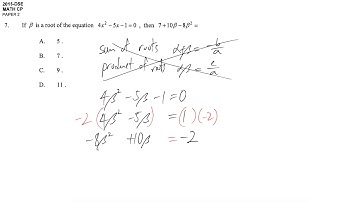 2015-DSE
MATH CP
PAPER 2
7. If β is a root of the equation 4x² − 5x − 1 = 0 , then 7 + 10β − 8β² =
A. 5 .
B. 7 .
C. 9 .
D. 11 .
sum of roots αβ = -b/a
product of roots αβ = c/a
4β² − 5β − 1 = 0
-2 (4β² − 5β) = (1)(-2)
-8β² + 10β = -2